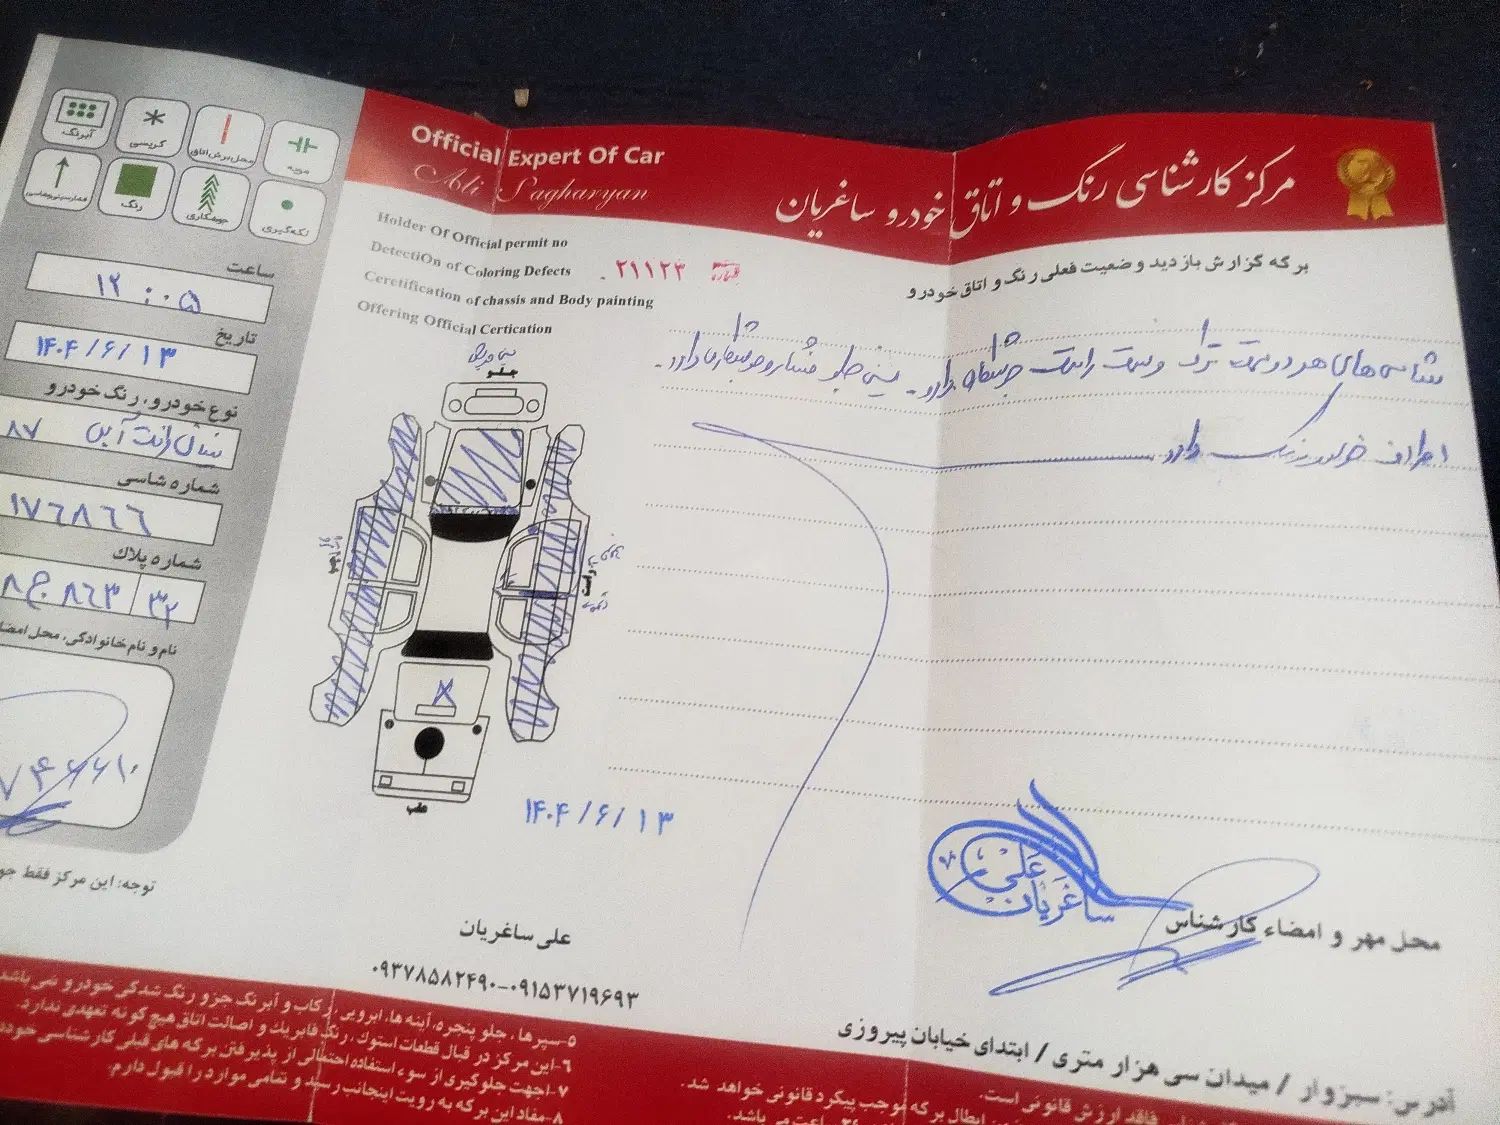 مرکز کارشناسی رنگ و اتاق خودرو ساغریان
Official Expert Of Car
Ali Sagharyan
برگه گزارش بازدید وضعیت فعلی رنگ و اتاق خودرو
Holder Of Official permit no
DetectiOn of Coloring Defects
Ceretification of chassis and Body painting
Offering Official Certication
شماره ۲۱۱۲۳
شاسی های هر دو سمت
دارد
اطراف خودرو رنگ دارد
مویه
محل برش اتاق
کرپسی
آبرنگ
لکه گیری
جوشکاری
رنگ
ساعت
۱۲:۰۵
تاریخ
۱۴۰۴/۶/۱۳
نوع خودرو، رنگ خودرو
نیسان وانت آبی ۸۷
شماره شاسی
۱۷۶۸۶۶
شماره پلاک
۳۲ ۸۶۳ ج ۸
نام و نام خانوادگی، محل امضا
توجه: این مرکز فقط
جلو
راست
عقب
۱۴۰۴/۶/۱۳
علی ساغریان
محل مهر و امضاء کارشناس
علی ساغریان
۰۹۳۷۸۵۸۲۴۹۰-۰۹۱۵۳۷۱۹۶۹۳
آدرس: سبزوار / میدان سی هزار متری / ابتدای خیابان پیروزی
۵-سپرها، جلو پنجره، آینه ها، ابرویی، رکاب و آبرنگ جزو رنگ شدگی خودرو نمی باشد
۶-این مرکز در قبال قطعات استوک، رنگ فابریک و اصالت اتاق هیچ گونه تعهدی ندارد.
۷-جهت جلوگیری از سوء استفاده احتمالی از پذیرفتن برگه های قبلی کارشناسی
۸-مفاد این برگه به رویت اینجانب رسید و تمامی موارد را قبول دارم.
فاقد ارزش قانونی است.
ابطال برگه موجب پیگرد قانونی خواهد شد.
ساعت می باشد.